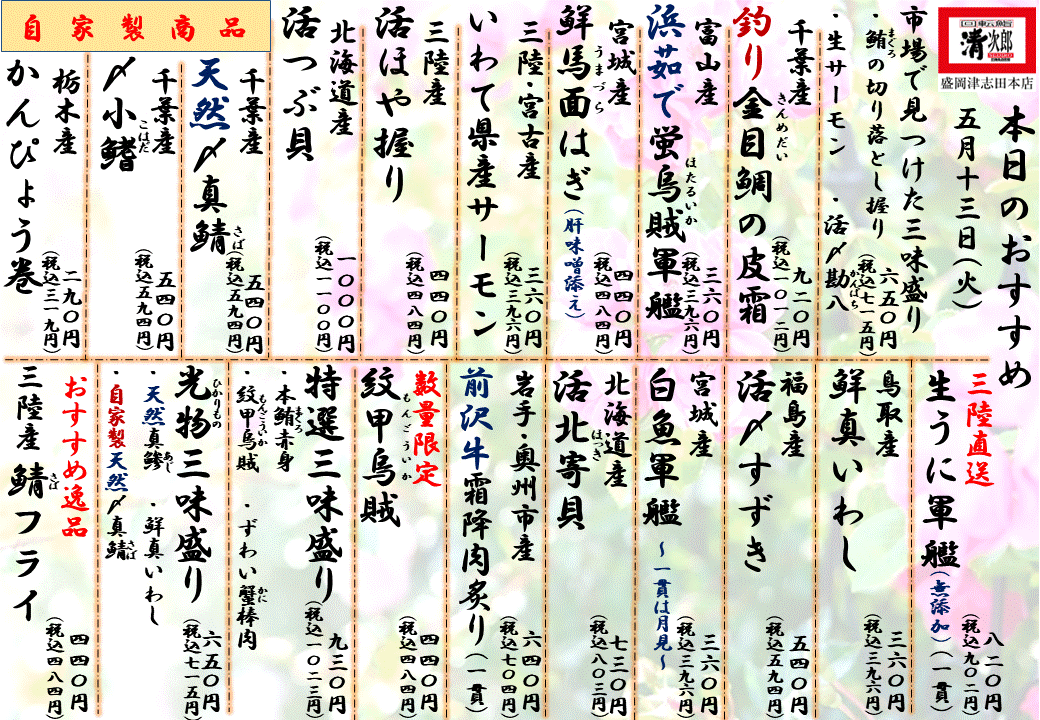 回転鮨
清次郎
盛岡津志田本店
本日のおすすめ
五月十三日(火)
市場で見つけた三味盛り
・鮪の切り落とし握り
まぐろ
・生サーモン ・活〆勘八
かんぱち
六五〇円
(税込七一五円)
千葉産
釣り金目鯛の皮霜
きんめだい
九二〇円
(税込一〇一二円)
富山産
浜茹で蛍烏賊軍艦
ほたるいか
三六〇円
(税込三九六円)
宮城産
鮮馬面はぎ(肝味噌添え)
うまづら
四四〇円
(税込四八四円)
三陸・宮古産
いわて県産サーモン
三六〇円
(税込三九六円)
三陸産
活ほや握り
四四〇円
(税込四八四円)
北海道産
活つぶ貝
一〇〇〇円
(税込一一〇〇円)
自家製商品
千葉産
天然〆真鯖
さば
五四〇円
(税込五九四円)
千葉産
〆小鰭
こはだ
五四〇円
(税込五九四円)
栃木産
かんぴょう巻
二九〇円
(税込三一九円)
三陸直送
生うに軍艦(無添加)(一貫)
八二〇円
(税込九〇二円)
鳥取産
鮮真いわし
三六〇円
(税込三九六円)
福島産
活〆すずき
五四〇円
(税込五九四円)
宮城産
白魚軍艦 ～一貫は月見～
三六〇円
(税込三九六円)
北海道産
活北寄貝
ほっき
七三〇円
(税込八〇三円)
岩手・奥州市産
前沢牛霜降肉炙り(一貫)
六四〇円
(税込七〇四円)
数量限定
紋甲烏賊
もんごういか
四四〇円
(税込四八四円)
特選三味盛り
・本鮪赤身
まぐろ
・紋甲烏賊 ・ずわい蟹棒肉
もんごういか
かに
九三〇円
(税込一〇二三円)
光物三味盛り
ひかりもの
・天然真鯵 ・鮮真いわし
あじ
・自家製天然〆真鯖
さば
六五〇円
(税込七一五円)
おすすめ逸品
三陸産 鯖フライ
さば
四四〇円
(税込四八四円)